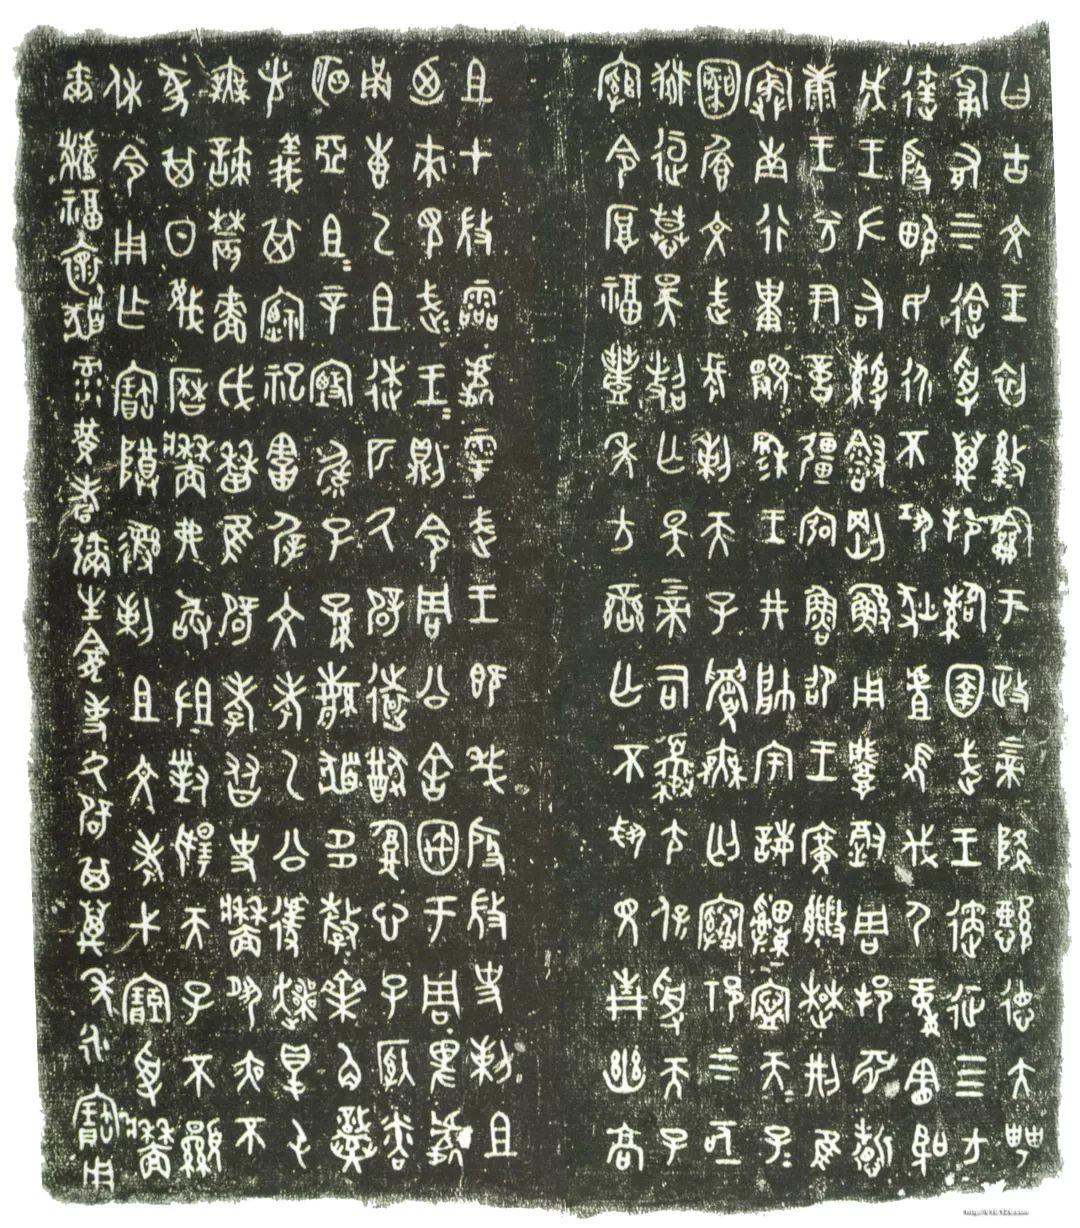 曰古文王初𢾊龢于政上帝降懿德大甹
匍有上下迨受萬邦䚄圉武王遹征四方
達殷畯民永不巩狄虘髟伐尸童憲聖
成王左右綬會剛鯀用肇徹周邦淵哲
康王兮尹億疆宏魯卲王廣能楚荊隹
寏南行祗顯穆王井帥宇誨申寧天子天子
圝餍文武長剌天子釁無匄寋祁上下亟
獄桓慕昊照亡斁上帝司夒尢保受天子
綰令厚福豐年方蠻亡不𢦚見青幽高
且才微霝處雩武王既𢦏殷微史剌且
廼來見武王武王則令周公舍㝢于周卑處甬
叀乙且逨匹厥辟遠猷腹心子納粦
明亞且且辛䢋毓子孫繁祓多釐齊角熾光
義其禋祀害屖文考乙公遽爽得屯
無諫農穡戉曆隹辟孝友史牆夙夜不
墜其日蔑曆牆弗敢沮對揚天子不顯
休令用乍寶尊彝剌且文考弋𥧌受牆
爾𪓐福懷𩛥彔黃耇彌生龕事厥辟其萬年永寶用